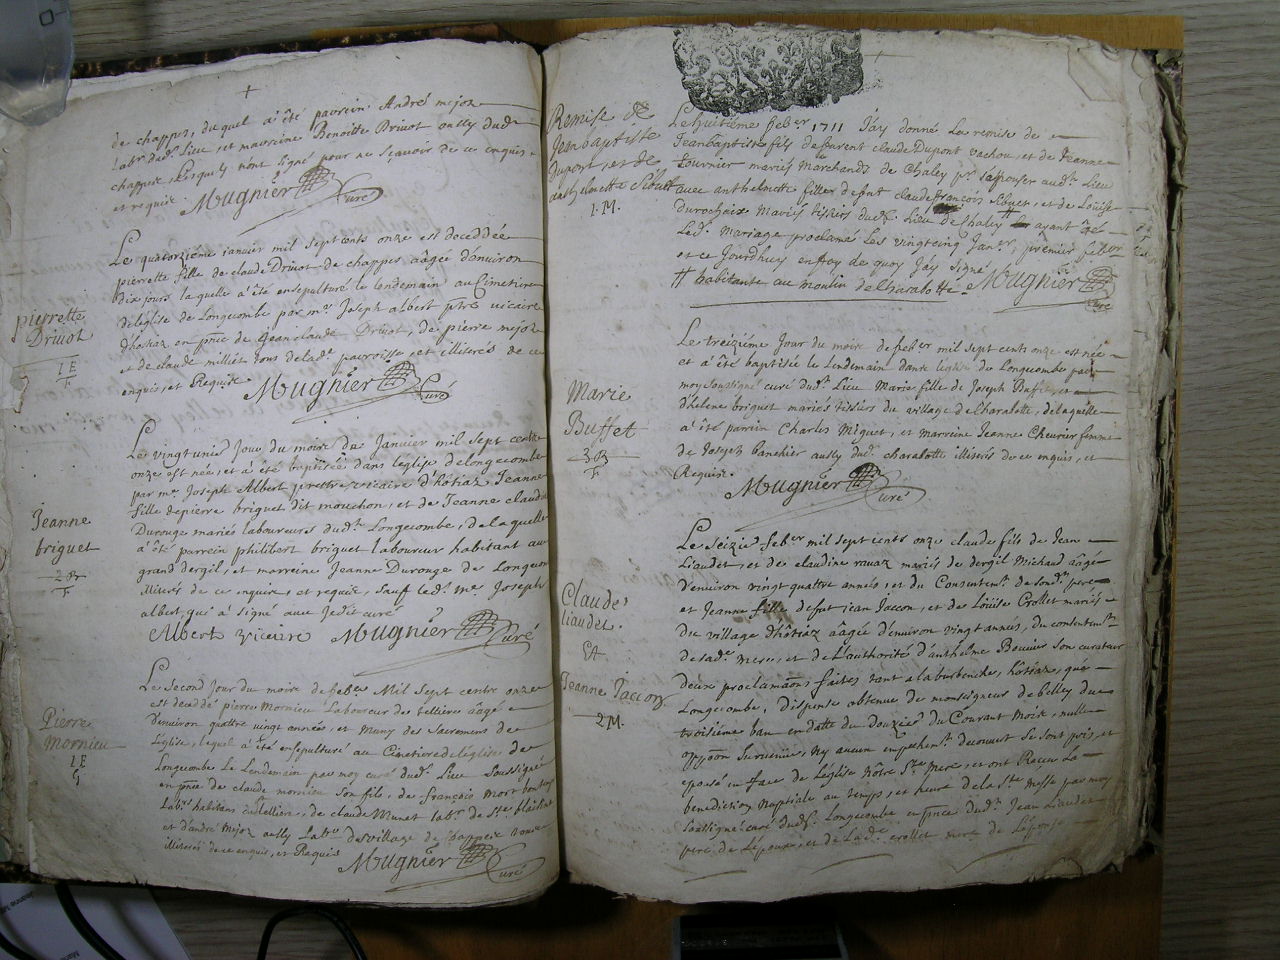 de chappes, duquel a été parrein André mejoz
labr. dudt. lieu, et marreine Benoitte Driuot aussy dudt.
chappes, lesquels n'ont signé pour ne sçavoir de ce enquis
et requis. Mugnier Curé
Le quatorzième janvier mil sept cents onze est decedée
pierrette fille de claude Driuot de chappes aagée d'environ
dix jours laquelle a été ensepulturé le lendemain au Cimetiere
de léglise de Longecombe par mr. Joseph albert ptre vicaire
d'hostiaz en pnce de Jean claude Driuot, de pierre mejoz
et de claude milliet tous de ladt. parroisse, et illiterés de ce
enquis et Requis Mugnier Curé
pierrette
Driuot
1 E
Le vingtunié Jour du moire du Janvier mil sept cents
onze est née, et a été baptisée dans leglise de longecombe
par me. Joseph Albert prettre vicaire d'hôtiaz Jeanne
fille de pierre briguet dit mouchon, et de Jeanne claudine
Durouge mariés laboureurs dudt. Longecombe, de laquelle
a été parrein philibert briguet laboureur habitant au
grand dergil, et marreine Jeanne Durouge de Longecombe
illiterés de ce enquis, et requis, sauf ledt. me Joseph
albert qui a signé avec Je dit curé
Albert vicaire Mugnier Curé
Jeanne
briguet
2 B
Le second Jour du moire de feber Mil sept centre onze
est deceddé pierre Mornieu Laboureur des tellieres aagé
d'environ quattre vingt années, et muny des sacremens de
l'église, lequel a été ensepulturé au Cimetiere de léglise de
Longecombe Le Lendemain par moy curé dudt. Lieu soussigné
en pnce de claude mornieu son fils, de françois mort
Labrs. habitans, de claude Munet labr. de ste blaisine
et d'andré Mejoz aussy Labr. du village de chappes tous
illiterés de ce enquis, et Requis Mugnier Curé
Pierre
Mornieu
1 E
Remise de
Jean baptiste
Dupont, et de
anthelmette Sibuet
1. M.
Le huitième feber 1711 J'ay donné La remise de
Jean baptiste fils de parent claude Dupont vachou, et de Jeanne
tournier mariés Marchands de Chaley pr. l'epouser audt. Lieu
avec anthelmette fille defeut claude françois Sibuet, et de Louise
Durochaix mariés tissiers dudt. lieu de Chaley # ayant été
Ledt. mariage proclamé Les vingtcinq Janvr. premier feber
et ce Jourdhuy en foy de quoy J'ay signé Mugnier Curé
# habitante au moulin de Charabotte
Le tréizième Jour du moire de feber mil sept cents onze est née
et a été baptisée le Lendemain dans leglise de Longecombe par
moy soussigné curé dudt. Lieu Marie fille de Joseph Buffet, et
d'helene briguet mariés tissiers du village de Charabotte, de laquelle
a été parrein Charles Miguet, et marreine Jeanne Chevrier femme
de Joseph banchier aussy dudt. charabotte illiterés de ce enquis, et
Requis. Mugnier Curé
Marie
Buffet
3 B
Le Seizié feber mil sept cents onze claude fils de Jean
Liaudet, et de claudine ravaz mariés de dergil Michaud aâgé
d'environ vingt quattre années, et du Consentemt. de sondt. pere
et Jeanne fille defut jean Jaccon, et de Loüise Crollet mariés
du village d'hôtiaz aâgée d'environ vingt années, du consentemt.
de ladt. mere, et de L'authorité d'anthelme Bouvier son curateur
deux proclamaons faites tant a la burbenche, hôtiaz, que
Longecombe, dispense obtenue de monseigneur de belley du
troisième ban en datte du douzié du Courant Moix, nulle
oppôon survenue, Ny aucun empechemt. decouvert se sont pris, et
epousé en face de L'église nôtre ste. mere, et ont Receu La
benediction nuptiale au temps, et heure de la ste messe par moy
soussigné curé dudt. Longecombe en pnce dudt. Jean Liaudet
pere de Lépoux, et de Ladt. crollet mere de Léponse
Claude
Liaudet
Et
Jeanne Jaccon
2 M.